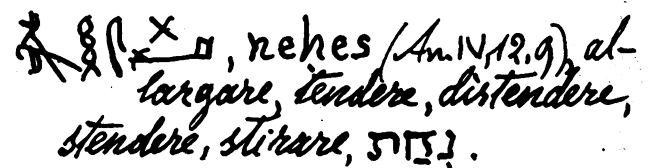 , nehes (An. IV, 12, 9), al-
largare, tendere, distendere,
stendere, stirare, נחת.